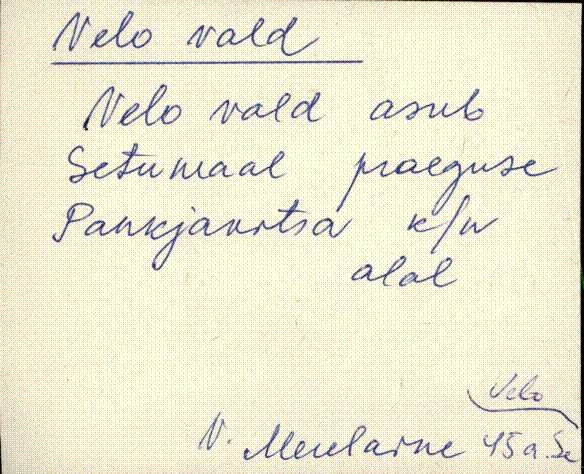 Velo vald
Velo vald asub
Setumaal praeguse
Pankjavitsa k/n
alal
Velo
V. Merelaine 45 a. Se